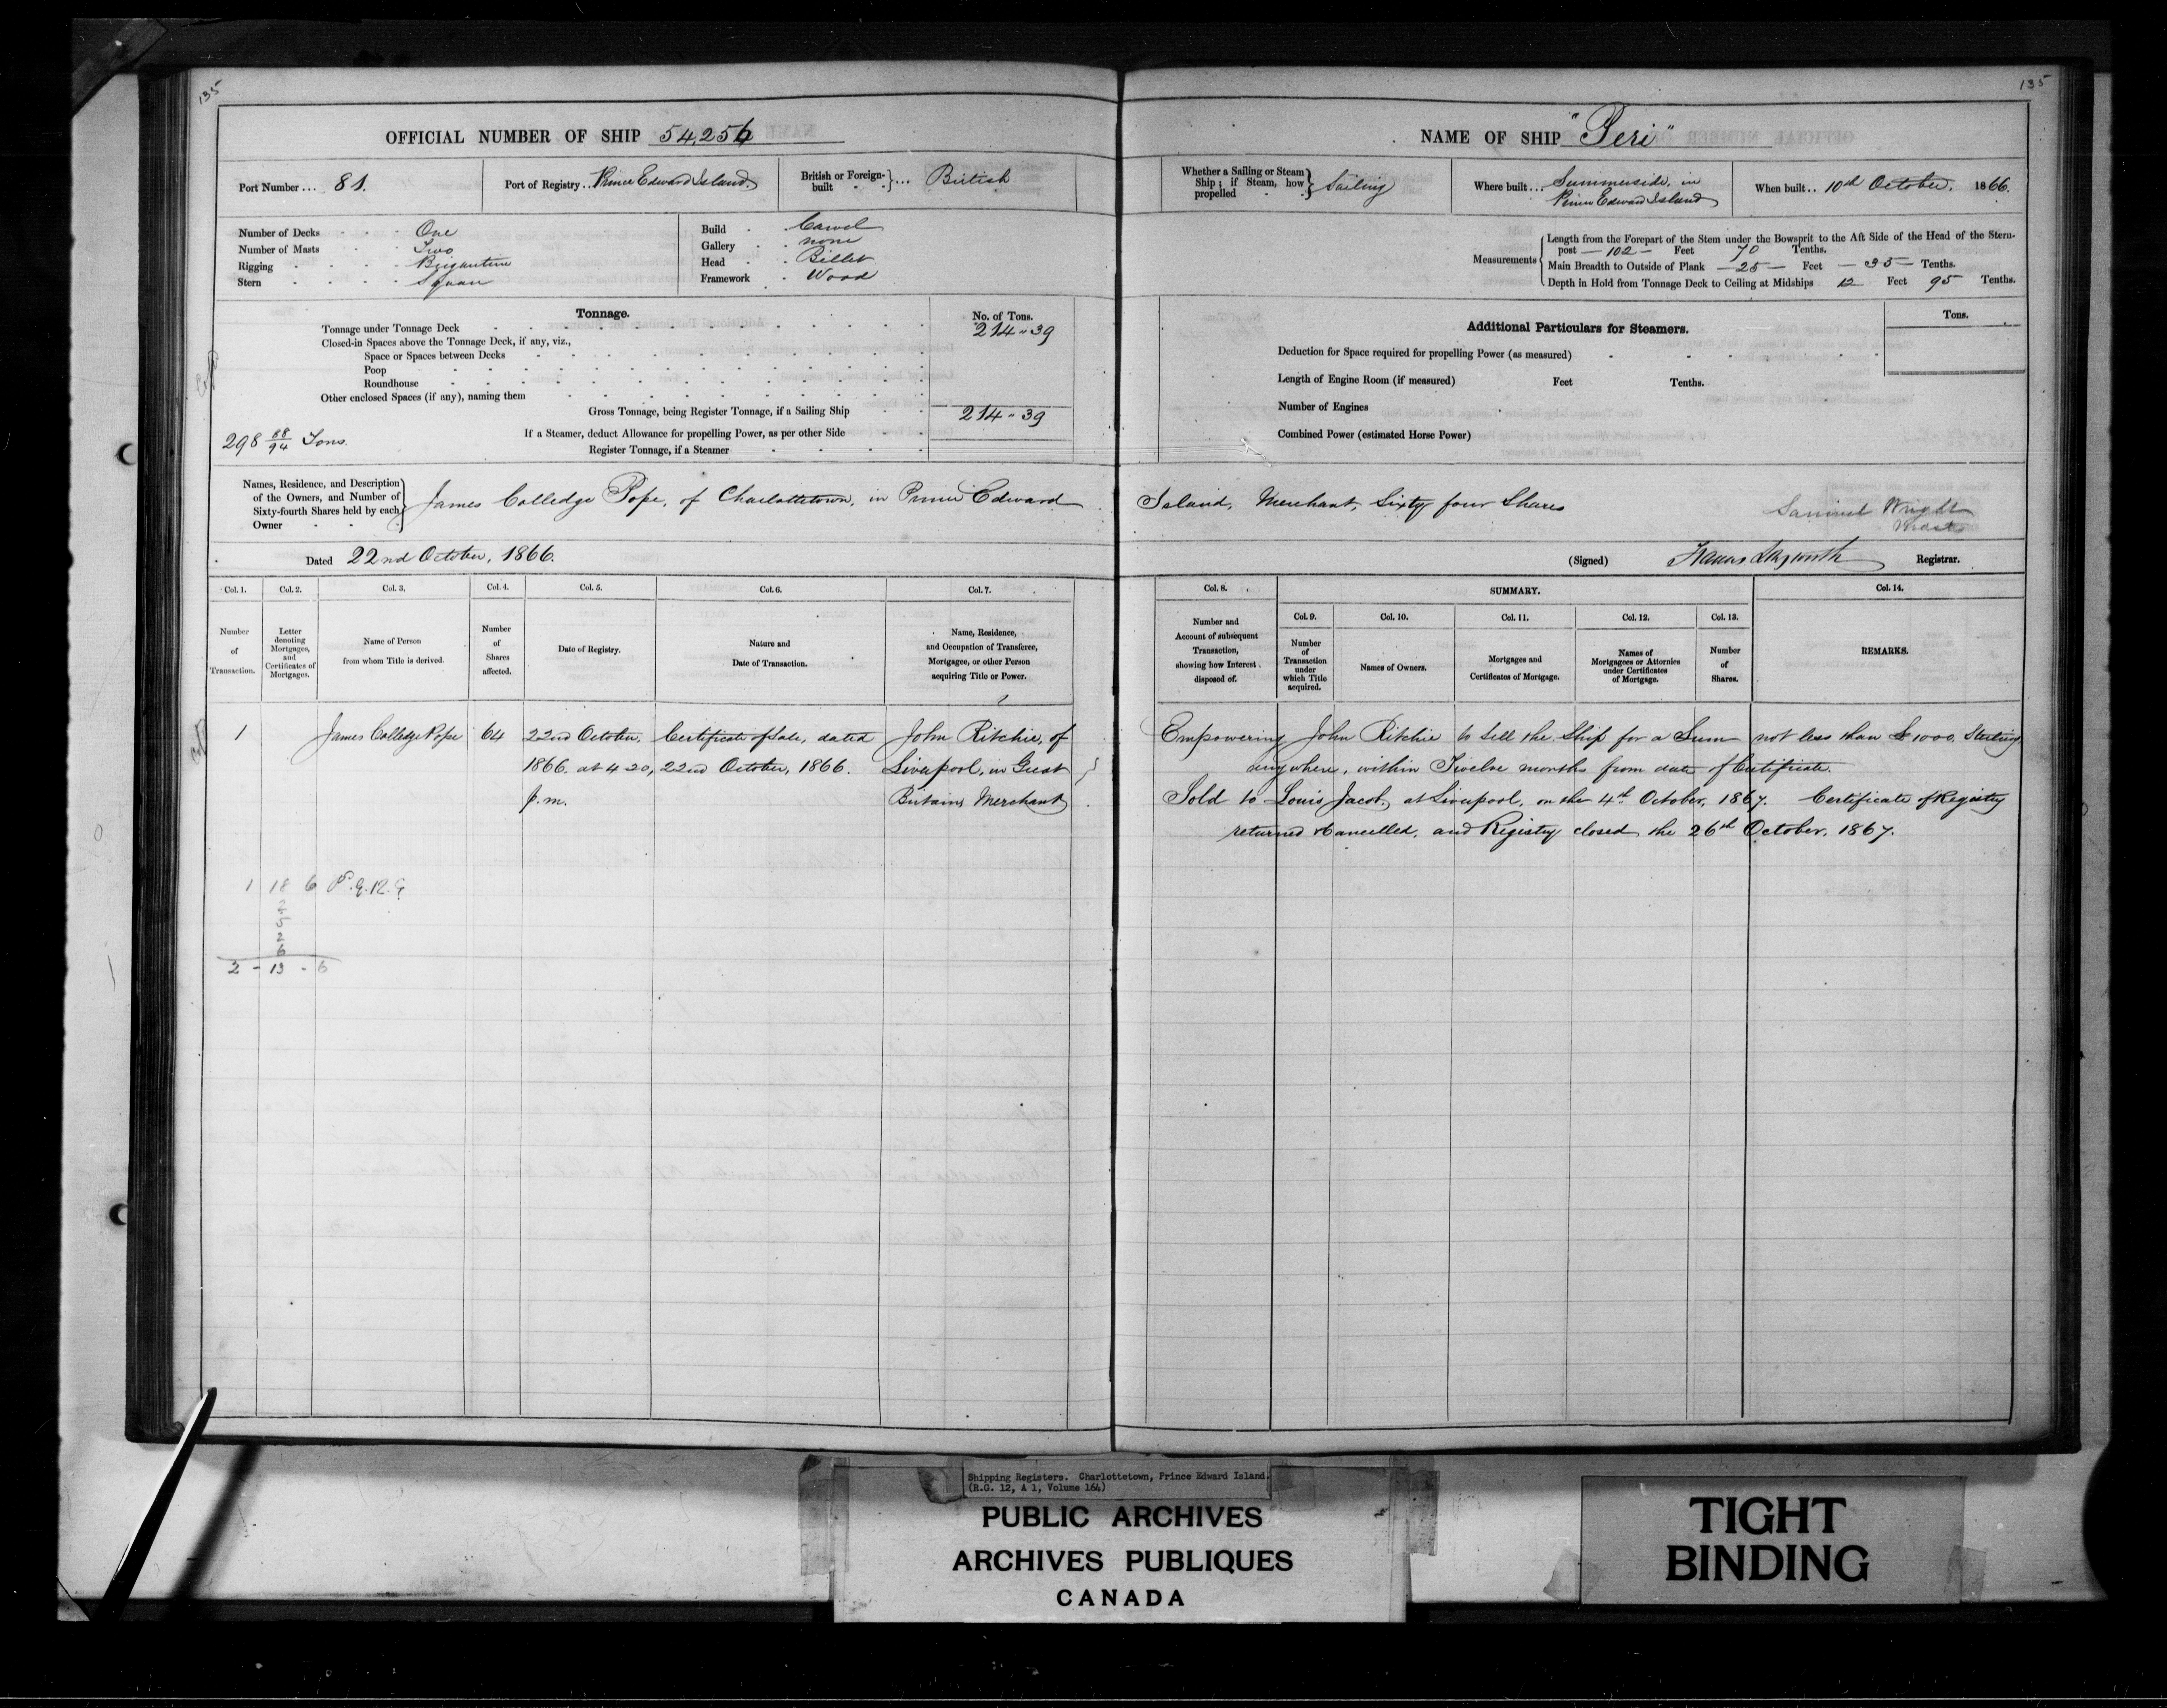 135
OFFICIAL NUMBER OF SHIP 54,256
Port Number ... 81.
Port of Registry .. Prince Edward Island.
British or Foreign-built } ... British
Number of Decks One
Number of Masts Two
Rigging Brigantine
Stern Square
Build Carvel
Gallery none
Head Billet
Framework Wood
Tonnage.
No. of Tons.
Tonnage under Tonnage Deck 214 " 39
Closed-in Spaces above the Tonnage Deck, if any, viz.,
Space or Spaces between Decks
Poop
Roundhouse
Other enclosed Spaces (if any), naming them
Gross Tonnage, being Register Tonnage, if a Sailing Ship 214 " 39
If a Steamer, deduct Allowance for propelling Power, as per other Side
Register Tonnage, if a Steamer
298 88/94 Tons.
Names, Residence, and Description
of the Owners, and Number of
Sixty-fourth Shares held by each
Owner
James Colledge Pope, of Charlottetown, in Prince Edward
Dated 22nd October, 1866.
Col. 1. Col. 2. Col. 3. Col. 4. Col. 5. Col. 6. Col. 7.
Number of Transaction.
Letter denoting Mortgages, and Certificates of Mortgages.
Name of Person from whom Title is derived.
Number of Shares affected.
Date of Registry.
Nature and Date of Transaction.
Name, Residence, and Occupation of Transferee, Mortgagee, or other Person acquiring Title or Power.
1 James Colledge Pope 64 22nd October, Certificate of Sale, dated John Ritchie, of
1866. at 4 20, 22nd October, 1866. Liverpool, in Great
p.m. Britain, Merchant
1 18 6
2
5
2
6
2 - 13 - 6
135
NAME OF SHIP "Peri"
Whether a Sailing or Steam
Ship; if Steam, how
propelled } Sailing
Where built ... Summerside, in
Prince Edward Island
When built .. 10th October, 1866.
Measurements
Length from the Forepart of the Stem under the Bowsprit to the Aft Side of the Head of the Stern-
post - 102 - Feet 70 Tenths.
Main Breadth to Outside of Plank - 25 - Feet - 35 - Tenths.
Depth in Hold from Tonnage Deck to Ceiling at Midships 12 Feet 95 Tenths.
Additional Particulars for Steamers.
Tons.
Deduction for Space required for propelling Power (as measured)
Length of Engine Room (if measured) Feet Tenths.
Number of Engines
Combined Power (estimated Horse Power)
Island, Merchant, Sixty four Shares
Samuel Wright
(Signed) Registrar.
Col. 8. SUMMARY. Col. 14.
Col. 9. Col. 10. Col. 11. Col. 12. Col. 13.
Number and Account of subsequent Transaction, showing how Interest disposed of.
Number of Transaction under which Title acquired.
Names of Owners.
Mortgages and Certificates of Mortgage.
Names of Mortgagees or Attornies under Certificates of Mortgage.
Number of Shares.
REMARKS.
Empowering John Ritchie to sell the Ship for a Sum not less than £1000. Sterling,
anywhere, within Twelve months from date of Certificate.
Sold to Louis Jacob, at Liverpool, on the 4th October, 1867. Certificate of Registry
returned & cancelled, and Registry closed the 26th October, 1867.
Shipping Registers. Charlottetown, Prince Edward Island.
(R.G. 12, A 1, Volume 164)
PUBLIC ARCHIVES
ARCHIVES PUBLIQUES
CANADA
TIGHT
BINDING